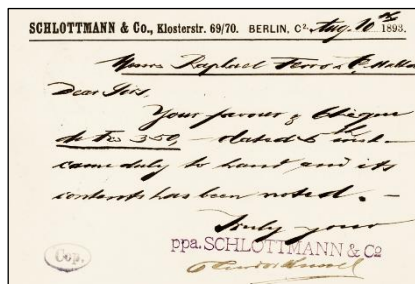 SCHLOTTMANN & Co., Klosterstr. 69/70. BERLIN, C². Aug. 10th 1893.
Messrs Raphael Ferro & C.
Dear Sirs.
Your favour & Cheque
350, – dated 5th inst
came duly to hand and its
contents has been noted. –
Truly yours
ppa. SCHLOTTMANN & Co
Cop.